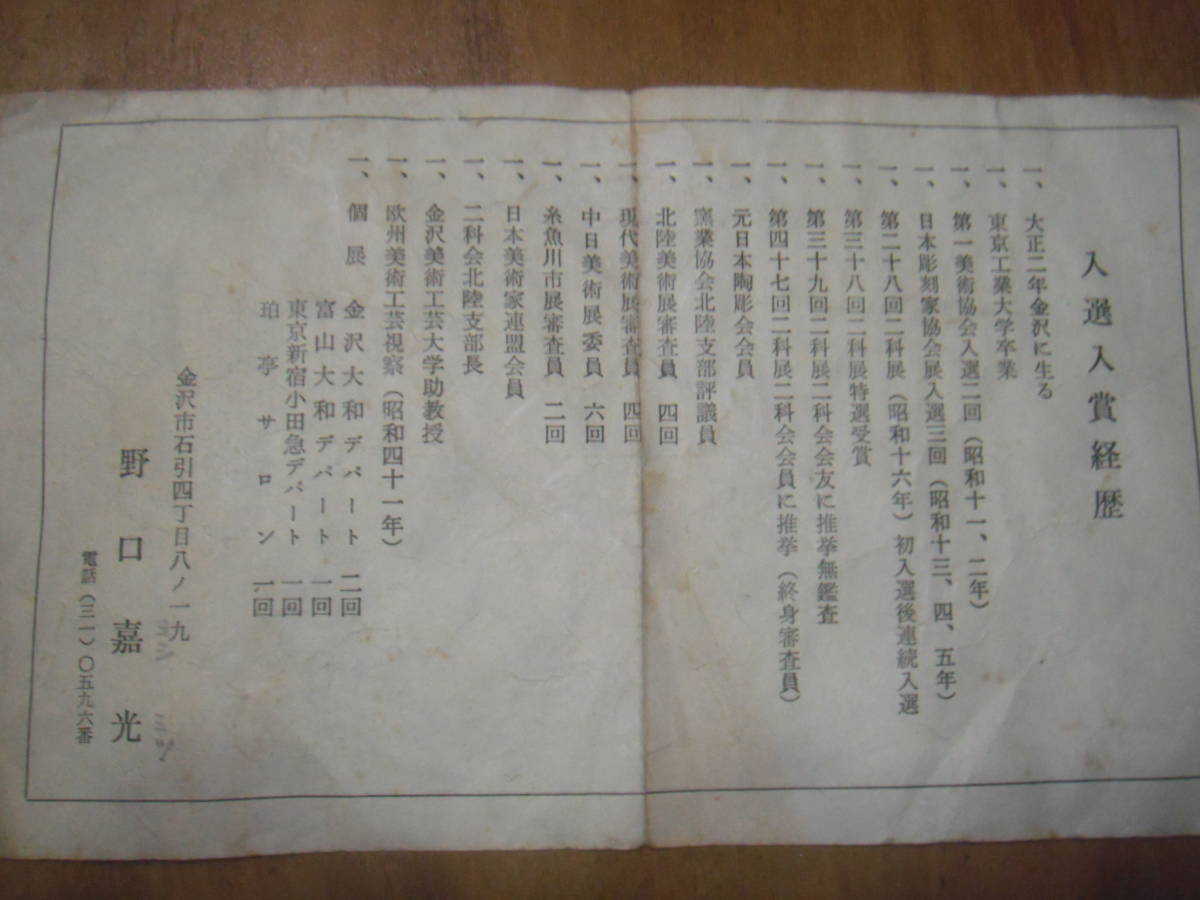 入選入賞経歴
一、大正二年金沢に生る
一、東京工業大学卒業
一、第一美術協会入選二回（昭和十一、二年）
一、日本彫刻家協会展入選三回（昭和十三、四、五年）
一、第二十八回二科展（昭和十六年）初入選後連続入選
一、第三十八回二科展特選受賞
一、第三十九回二科展二科会会友に推挙無鑑査
一、第四十七回二科展二科会会員に推挙（終身審査員）
一、元日本陶彫会会員
一、窯業協会北陸支部評議員
一、北陸美術展審査員 四回
一、現代美術展審査員 四回
一、中日美術展委員 六回
一、糸魚川市展審査員 二回
一、日本美術家連盟会員
一、二科会北陸支部長
一、金沢美術工芸大学助教授
一、欧州美術工芸視察（昭和四十一年）
一、個展 金沢大和デパート 二回
富山大和デパート 一回
東京新宿小田急デパート 一回
珀亭サロン 一回
金沢市石引四丁目八ノ一九
ヨシ ミツ
野口嘉光
電話（三一）〇五九六番